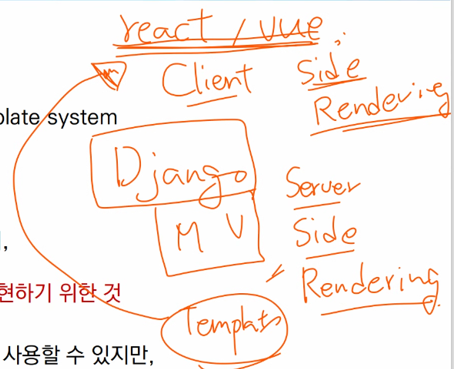 react / vue
Client Side
Rendering
plate system
Django
Server
M V
Side
,
Rendering
현하기 위한 것
Template
사용할 수 있지만,